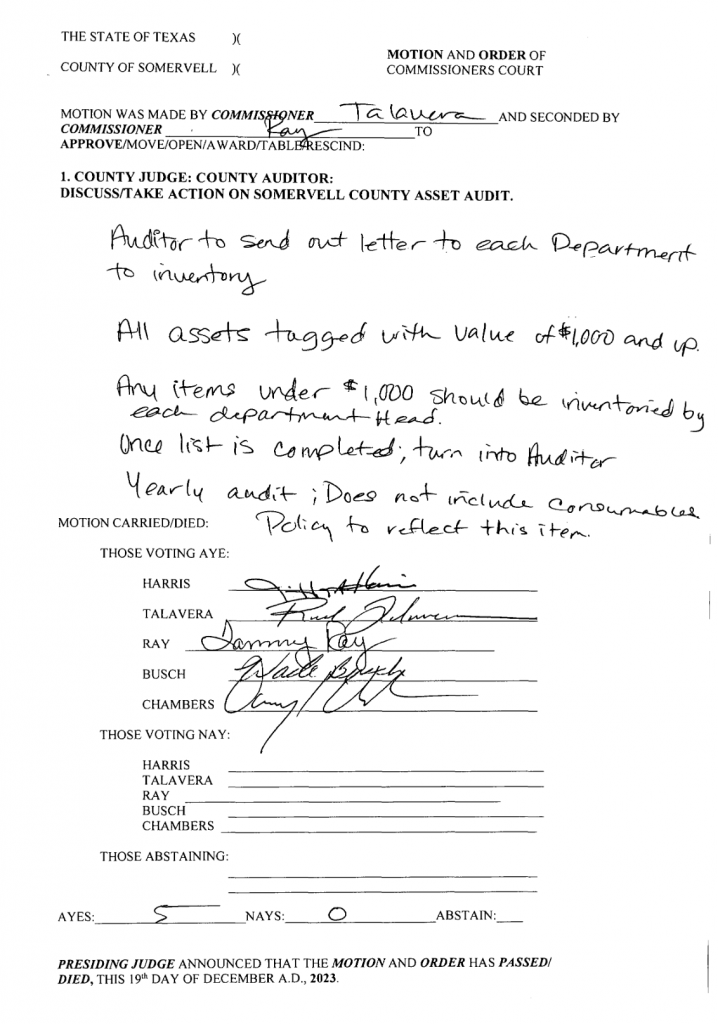 THE STATE OF TEXAS )(
MOTION AND ORDER OF
COUNTY OF SOMERVELL )(
COMMISSIONERS COURT
MOTION WAS MADE BY COMMISSIONER Talavera AND SECONDED BY
COMMISSIONER Ray TO
APPROVE/MOVE/OPEN/AWARD/TABLE/RESCIND:
1. COUNTY JUDGE: COUNTY AUDITOR:
DISCUSS/TAKE ACTION ON SOMERVELL COUNTY ASSET AUDIT.
Auditor to send out letter to each Department
to inventory
All assets tagged with value of $1,000 and up.
Any items under $1,000 should be inventoried by
each department Head.
Once list is completed; turn into Auditor
Yearly audit ; Does not include consumables
MOTION CARRIED/DIED: Policy to reflect this item.
THOSE VOTING AYE:
HARRIS
TALAVERA
RAY Tammy Ray
BUSCH Wade Busch
CHAMBERS
THOSE VOTING NAY:
HARRIS
TALAVERA
RAY
BUSCH
CHAMBERS
THOSE ABSTAINING:
AYES: 5 NAYS: 0 ABSTAIN:
PRESIDING JUDGE ANNOUNCED THAT THE MOTION AND ORDER HAS PASSED/
DIED, THIS 19th DAY OF DECEMBER A.D., 2023.